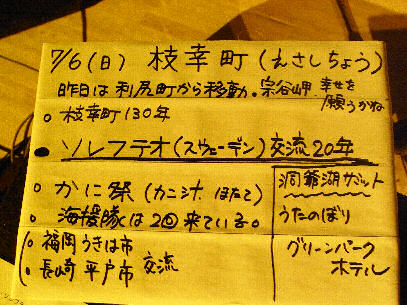 7/6(日) 枝幸町(えさしちょう)
昨日は利尻町から移動。宗谷岬 幸せを
願うかね
○ 枝幸町130年
● ソレフテオ(スウェーデン)交流20年
○ かに祭(カニ汁 ほたて)
○ 海援隊は2回来ている。
○ 福岡うきは市
○ 長崎 平戸市 交流
洞爺湖サミット
うたのぼり
グリーンパーク
ホテル